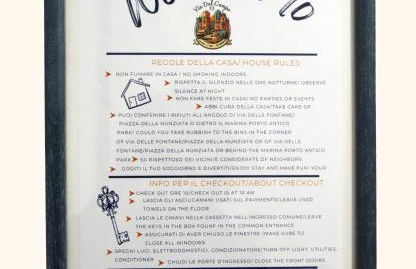 Via Del Campo
REGOLE DELLA CASA/ HOUSE RULES:
NON FUMARE IN CASA / NO SMOKING INDOORS
RISPETTA IL SILENZIO NELLE ORE NOTTURNE/ OBSERVE
SILENCE AT NIGHT
NON FARE FESTE IN CASA/ NO PARTIES OR EVENTS
ABBI CURA DELLA CASA/TAKE CARE OF
PUOI CONFERIRE I RIFIUTI ALL'ANGOLO DI VIA DELLE FONTANE/
PIAZZA DELLA NUNZIATA O DIETRO IL MARINA PORTO ANTICO
PARK/ COULD YOU TAKE RUBBISH TO THE BINS IN THE CORNER
OF VIA DELLE FONTANE/PIAZZA DELLA NUNZIATA OR OF VIA DELLE
FONTANE/PIAZZA DELLA NUNZIATA OR BEHIND THE MARINA PORTO ANTICO
PARK SII RISPETTOSO DEI VICINI/E CONSIDERATE OF NEIGHBORS
GODITI IL TUO SOGGIORNO E DIVERTITI/ENJOY STAY AND HAVE FUN! YOUR
INFO PER IL CHECKOUT/ABOUT CHECKOUT
CHECK OUT ORE 10/CHECK OUT IS AT 10 AM
LASCIA GLI ASCIUGAMANI USATI SUL PAVIMENTO/LEAVE USED
TOWELS ON THE FLOOR
LASCIA LE CHIAVI NELLA CASSETTA NELL'INGRESSO COMUNE/LEAVE
THE KEYS IN THE BOX FOUNF IN THE COMMON ENTRANCE
ASSICURATI DI AVER CHIUSO LE FINESTRE /MAKE SURE TO
CLOSE ALL WINDOWS
SPEGNI LUCI, ELETTRODOMESTICI, CONDIZIONATORE/TURN OFF LIGHT, UTILITIES,
CONDITIONER CHIUDI LE PORTE D'INGRESSO/ CLOSE THE FRONT DOORS